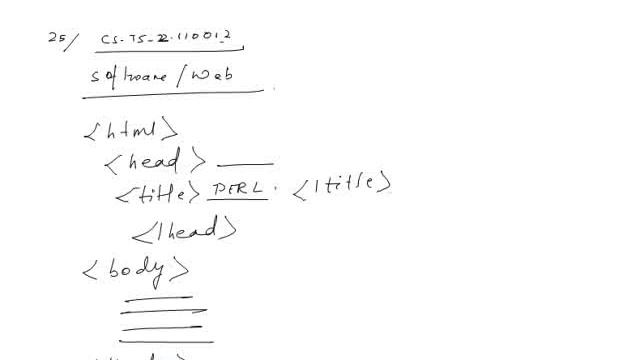 25/ CS-TS-22-110012
software/web
<html>
<head>
<title> PERL. </title>
</head>
<body>